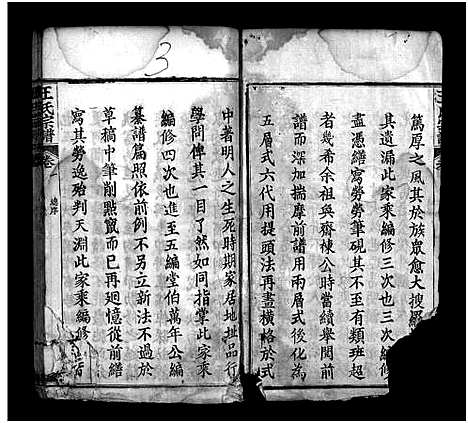 篤厚之風其於族眾愈大搜羅
其遺漏此家乘編修三次也三次編修
盡憑繕寫勞勞筆硯其不至有類班超
者幾希余祖與齊棟公時嘗續舉閱前
譜而深加揣摩前譜用兩層式後化為
五層式六代用提頭法再畫橫格於式
中著明人之生死時期家居地址品行
學問俾其一目了然如同指掌此家乘
編修四次也進至五編堂伯萬年公編
纂譜篇照依前例不另立新法不過於
草稿中筆削點竄而已再廻憶從前繕
寫其勞逸殆判天淵此家乘編修
王氏宗譜
卷
總序
3